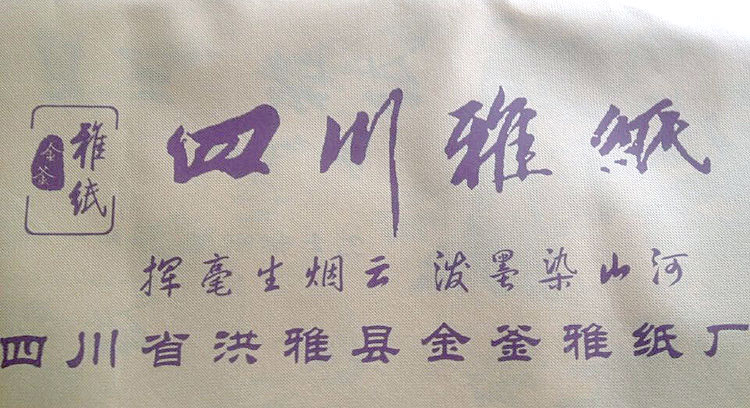 金釜
雅纸
四川雅纸
挥毫生烟云 泼墨染山河
四川省洪雅县金釜雅纸厂